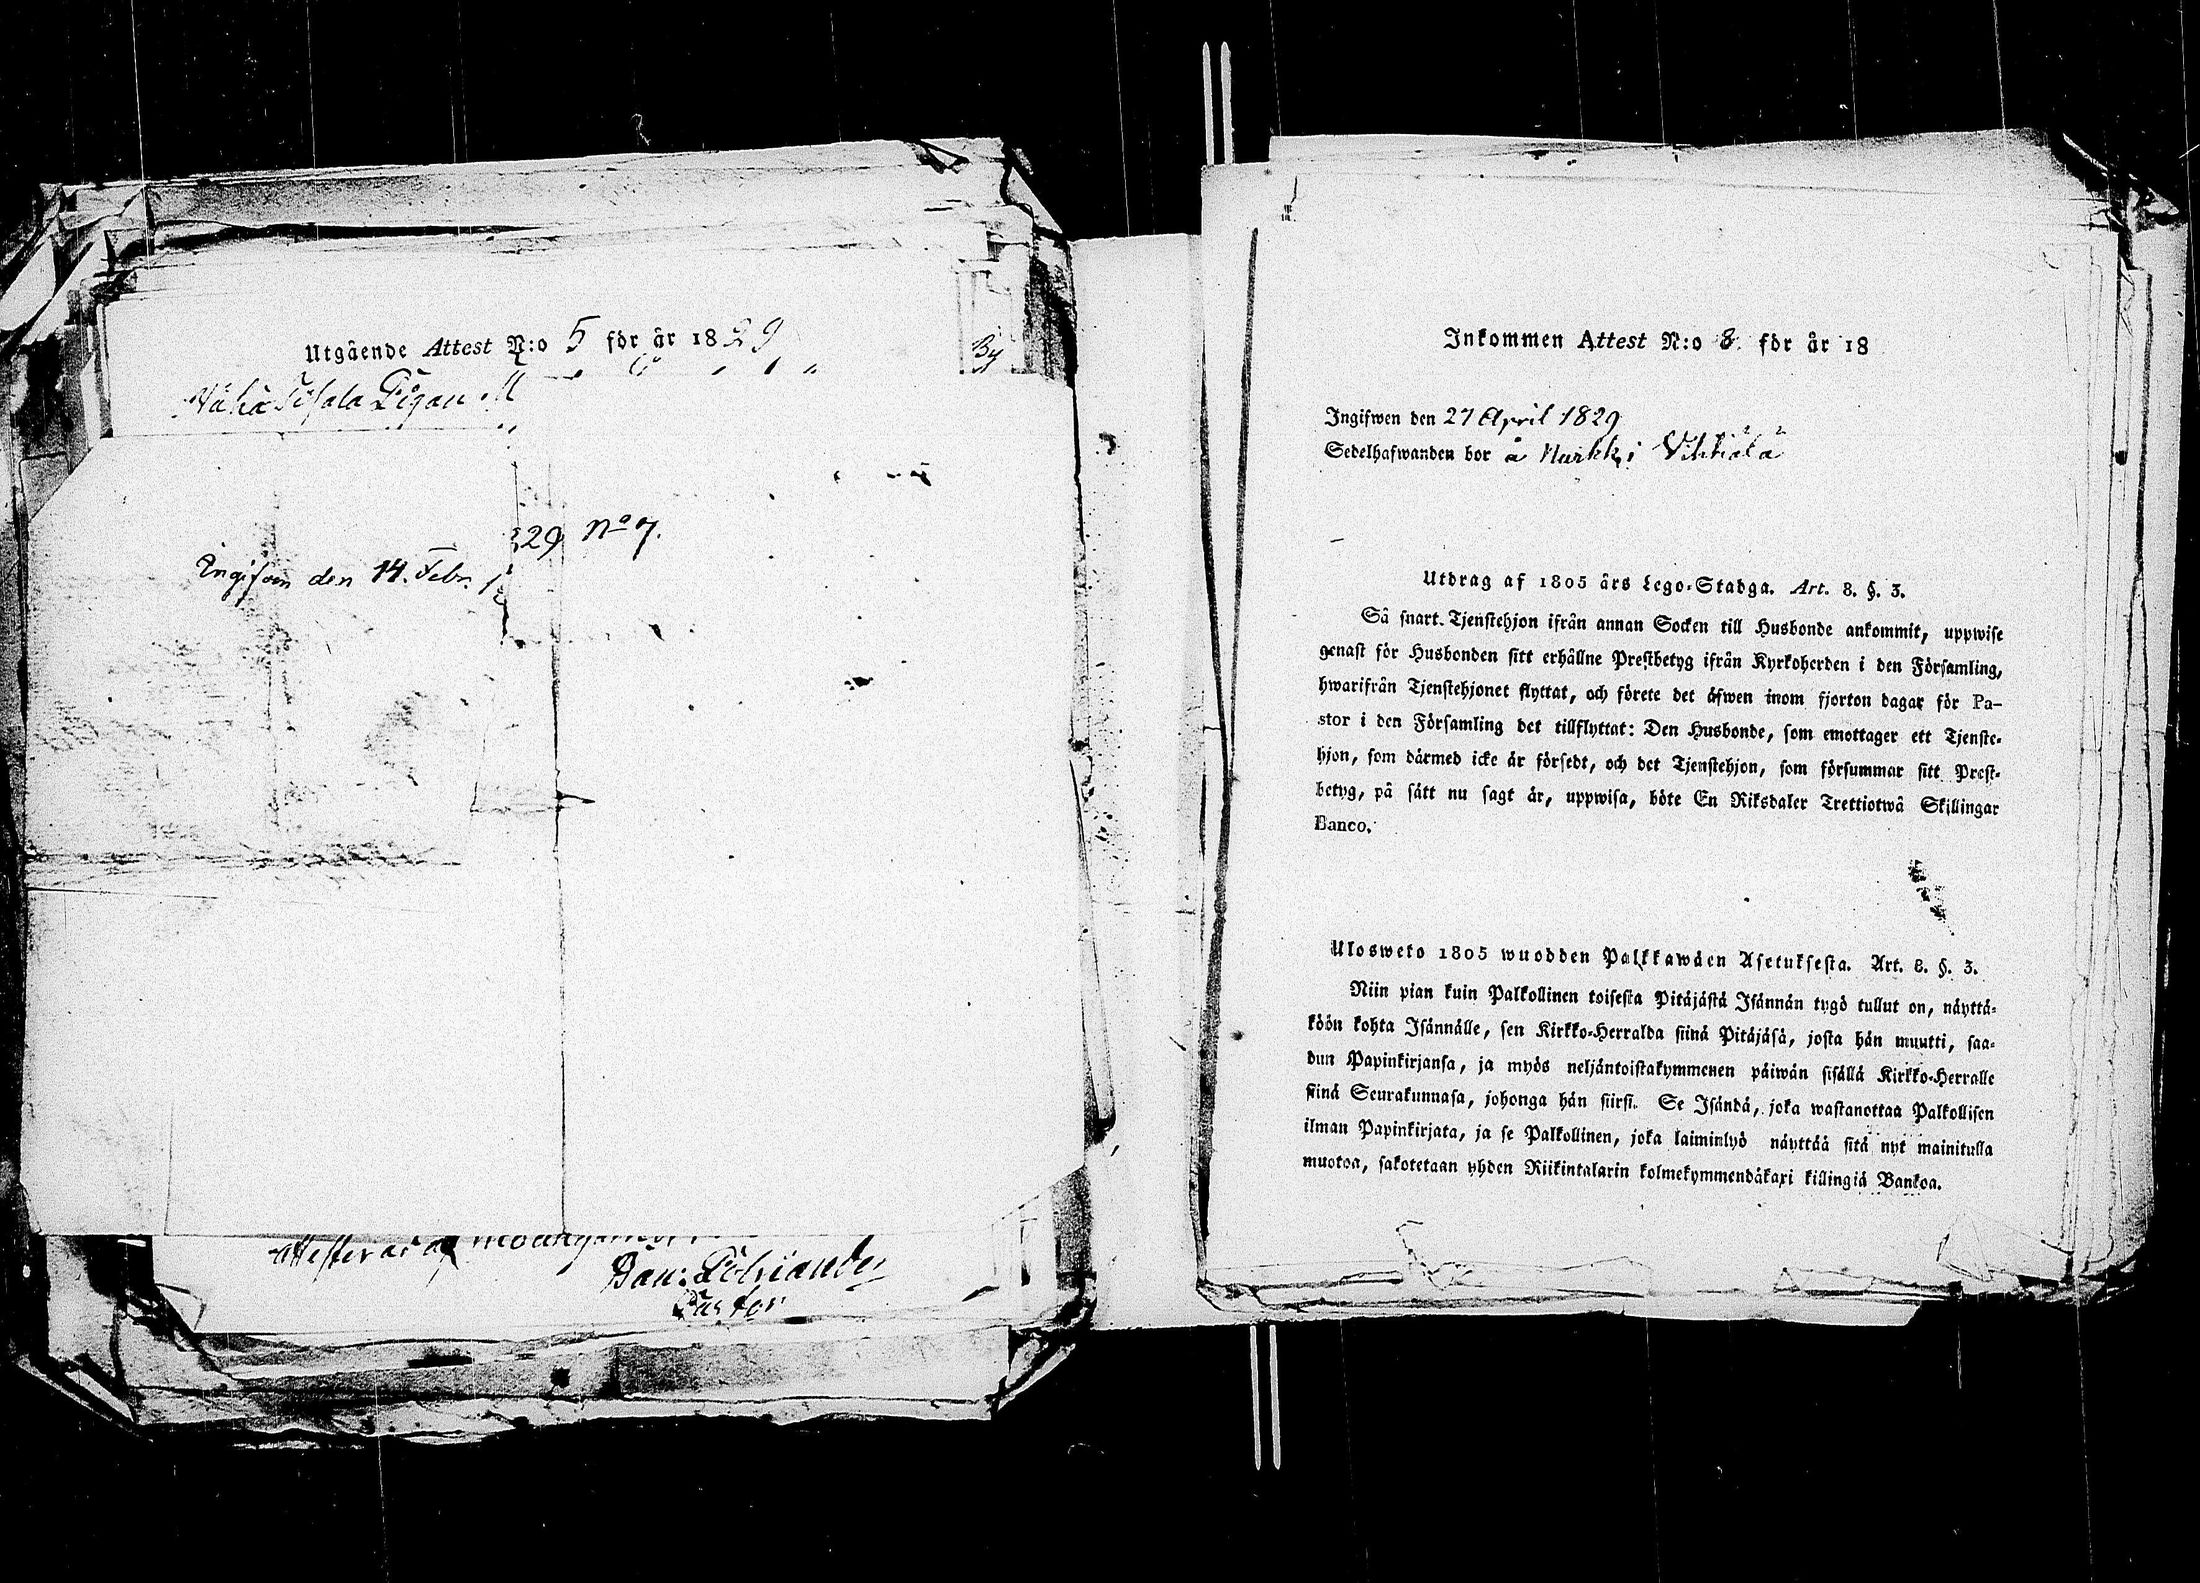 Utgående Attest N:o 5 för år 1829
By
Pigan M
29 No 7.
Ingifven den 14. Febr.
attesteras af
Dan:
Pastor
Inkommen Attest N:o 8. för år 18
Ingifwen den 27 April 1829
Sedelhafwanden bor å Nurkki
Utdrag af 1805 års Lego-Stadga. Art. 8. §. 3.
Så snart Tjenstehjon ifrån annan Socken till Husbonde ankommit, uppwise
genast för Husbonden sitt erhållne Prestbetyg ifrån Kyrkoherden i den Församling,
hwarifrån Tjenstehjonet flyttat, och förete det äfwen inom fjorton dagar för Pa-
stor i den Församling det tillflyttat: Den Husbonde, som emottager ett Tjenste-
hjon, som därmed icke är försedt, och det Tjenstehjon, som försummar sitt Prest-
betyg, på sätt nu sagt är, uppwisa, böte En Riksdaler Trettiotwå Skillingar
Banco.
Ulosweto 1805 wuodden Palkkawäen Asetuksesta. Art. 8. §. 3.
Niin pian kuin Palkollinen toisesta Pitäjästä Isännän tygö tullut on, näyttä-
köön kohta Isännälle, sen Kirkko-Herralda siinä Pitäjäsä, josta hän muutti, saa-
dun Papinkirjansa, ja myös neljäntoistakymmenen päiwän sisällä Kirkko-Herralle
siinä Seurakunnasa, johonga hän siirsi. Se Isändä, joka wastanottaa Palkollisen
ilman Papinkirjata, ja se Palkollinen, joka laiminlyö näyttää sitä nyt mainitulla
muotoa, sakotetaan yhden Riikintalarin kolmekymmendäkaxi killingiä Bankoa.